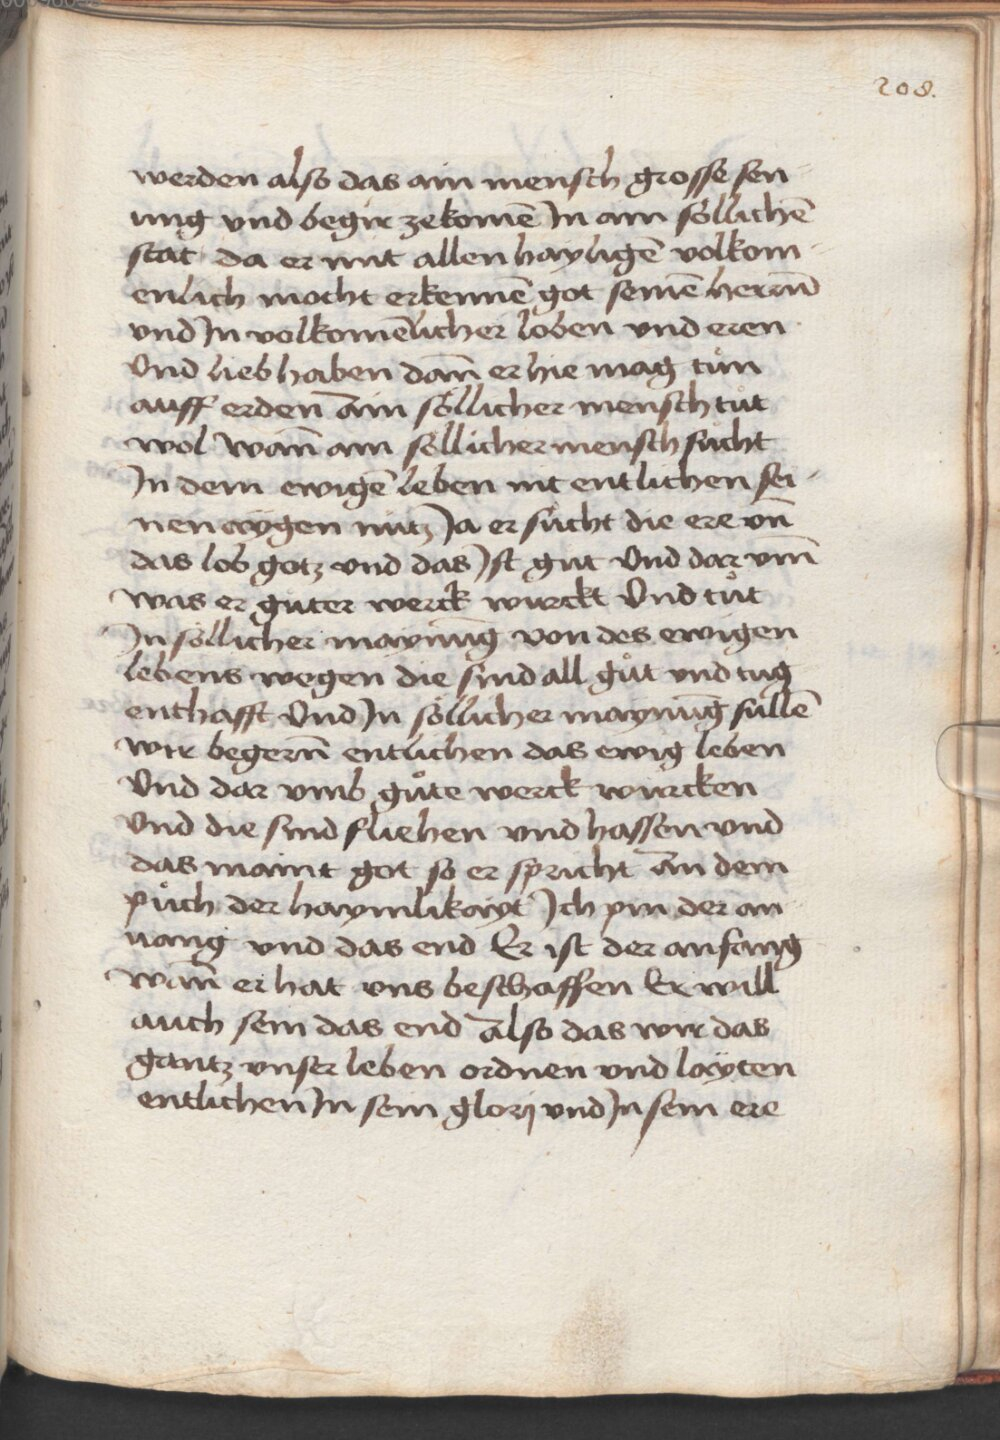 208.
werden also das ain mensch grosse sen
ung vnd begir zekomē In ain söllichē
stat da er mit allen hayligē volkom
enlich mocht erkennē got seinē herrn̄
vnd In volkomēlicher loben vnd eren
Vnd lieb haben dan̄ er hie mag tůn
auff erden Ain söllicher mensch tůt
wol wan̄ ain söllicher mensch sücht
In dem ewigē leben nit entlichen sei
nen aygen nütz Ja er sücht die ere vn̄
das lob gotz vnd das Ist gut Vnd dar vm̄
was er guter werck würckt Vnd tůt
In söllicher maynūg von des ewigen
lebens wegen die sind all gůt vnd tug
enthafft Vnd In söllicher maynūg süllē
wir begern̄ entlichen das ewig leben
Vnd dar vmb gůte werck würcken
Vnd die sünd fliehen vnd hassen vnd
das maint got so er spricht An dem
půch der haymlikayt Ich pin der an
uang vnd das end Er ist der anfang
wan̄ er hat vns beschaffen Er will
auch sein das end Also das wir das
gantz vnser leben ordnen vnd layten
entlichen In sein glorj vnd In sein ere